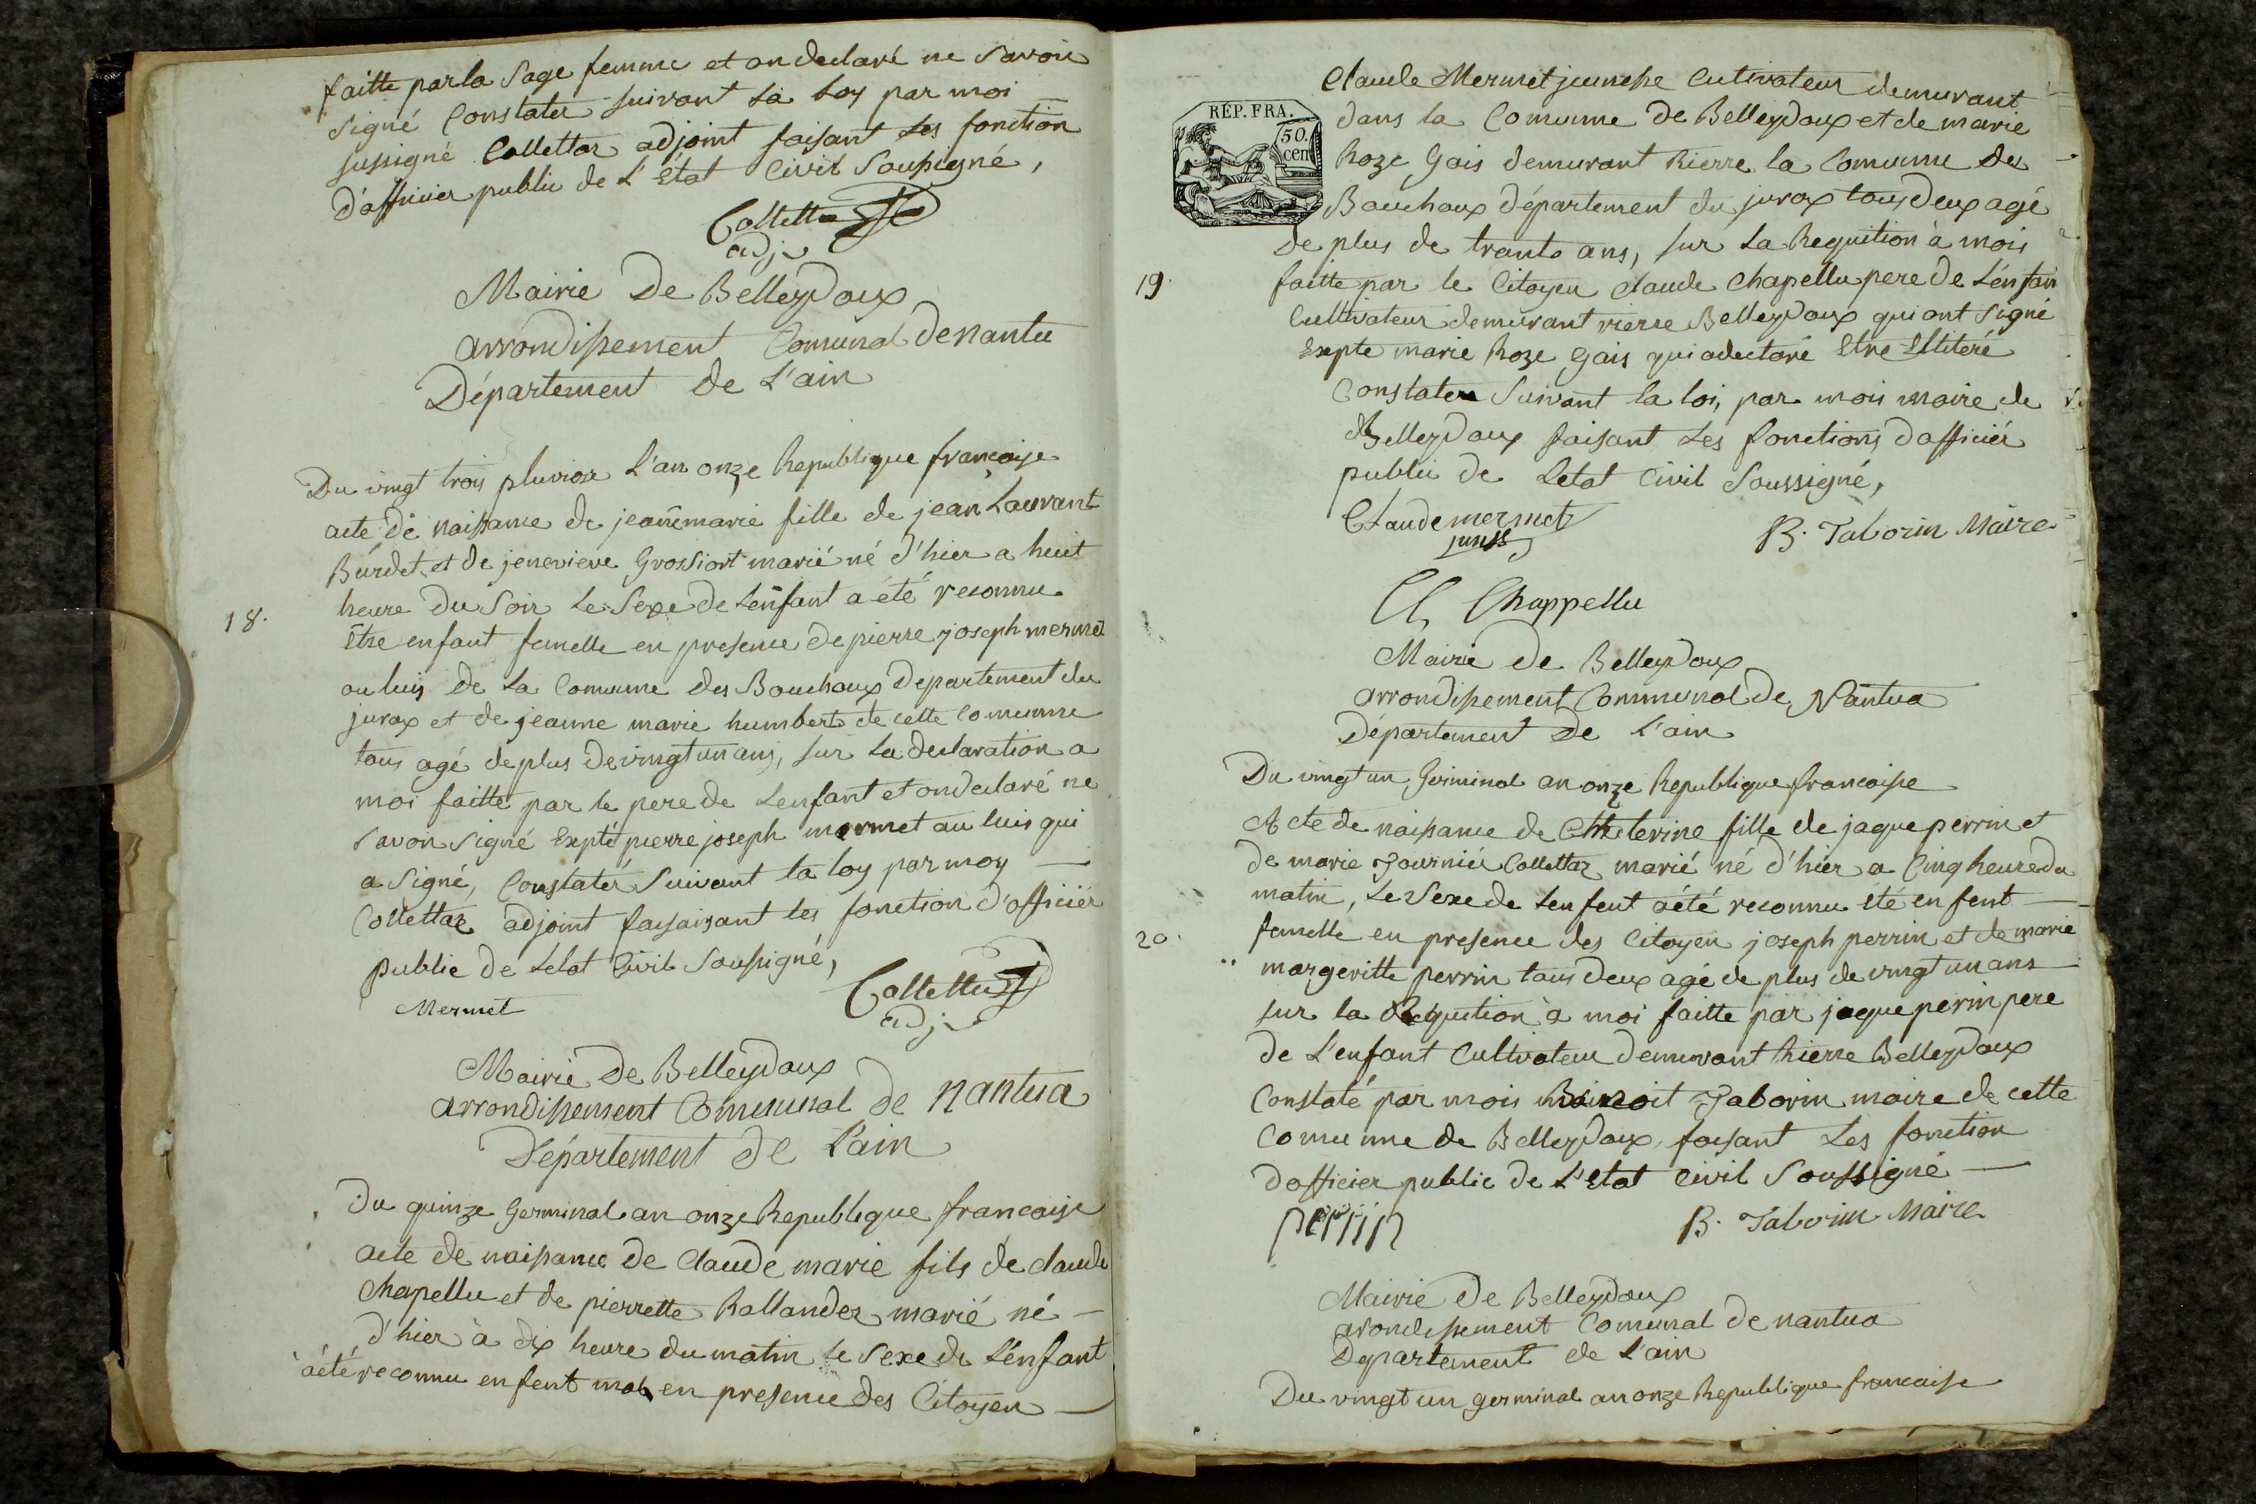 faitte par la Sage femme et on declaré ne Savoir
Signé Constater suivant La Loy par moi
sussigné Collettaz adjoint faisant Les fonction
D'officier public de L'État Civil Soussigné,
Collettaz
adj
Mairie De Belleydoux
arrondissement Comunal de nantu
Département de L'ain
Du vingt trois pluviose L'an onze Republique françoise
acte de naissance de jeanémarie fille de jean Laurant
Burdet et de jenevieve Grossiort marié né d'hier a huit
18. heure Du Soir Le Sexe de Lenfant a été reconnu
Etre enfant femelle en presence de pierre joseph mermet
au luis de La Comunne des Bouchoux Departement du
jurax et de jeanne marie humbert de cette Comunne
tous agé de plus de vingt un ans, sur La declaration a
moi faitte par le pere de Lenfant et on declaré ne
savoir signé Exepté pierre joseph mermet au luis qui
a Signé, Constater Suivant la loy par moy
Collettaz adjoint faisaisant les fonction d'officiér
public de Letat Civil Soussigné,
Mermet
Collettaz
adj
Mairie De Belleydoux
arrondissement Comunal de nantua
Département de L'ain
Du quinze Germinal an onze Republique francoise
acte de naissance De Claude marie fils de claude
Chapellu et de pierrette Rallandez marié né
d'hier à dix heure du matin le Sexe de L'enfant
a été reconnu enfent mal en presence des Citoyen
RÉP. FRA.
50.
cen
Claude Mermet jeunesse Cutivateur demurant
dans la Comunne de Belleydoux et de marie
Roze Gais demurant Rierre la Comunne des
Bouchoux département du jurax tous deux agé
De plus de trante ans, sur La Requition à mois
19. faitte par le Citoyen claude Chapellu pere de L'enfan
Cultivateur demurant rierre Belleydoux qui ont Signé
Exepte marie Roze Gais qui a declaré Etre Illiteré
Constater Suivant la loi, par mois maire de
Belleydoux faisant Les fonctions d'officiér
public de Letat Civil Soussigné,
Claude mermet
junss
B. Taborin Maire
Cl Chappellu
Mairie de Belleydoux
arrondissement Communal de Nantua
Département De L'ain
Du vingt un Germinal an onze Republique francoise
Acte de naissance de Chaterine fille de jaque perrin et
de marie Fourniér Collettaz marié né d'hier a Cinq heure du
matin, Le Sexe de Lenfent a été reconnu été enfent
20. femelle en presence des Citoyen joseph perrin et de marie
margeritte perrin tous Deux agé de plus de vingt un ans
sur la Requition à moi faitte par jaque perin pere
de L'enfant Cultivateur demurant Rierre Belleydoux
Constaté par mois Benoit Taborin maire de cette
Comunne de Belleydoux faisant Les fonction
dofficier public de L'Etat Civil Soussigné
perrin
B. Taborin Maire
Mairie De Belleydoux
arondissement Comunal de nantua
Departement de L'ain
Du vingt un germinal an onze Republique francaise